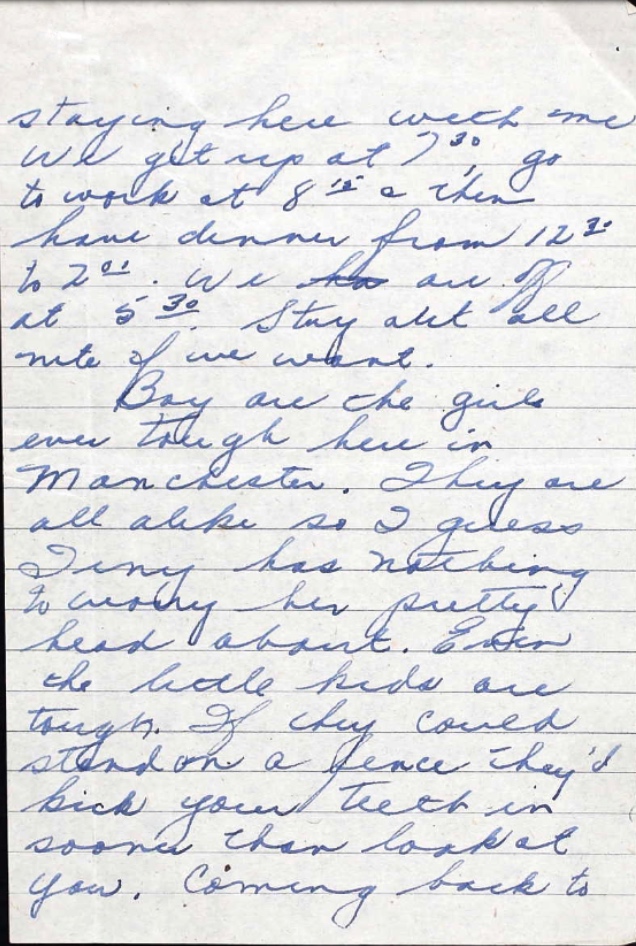 staying here with me
We get up at 7³⁰, go
to work at 8¹⁵ & then
have dinner from 12³⁰
to 2⁰¹. We ha are off
at 5³⁰. Stay out all
nite if we want.
Boy are the girls
ever tough here in
Manchester. They are
all alike so I guess
has nothing
to worry her pretty
head about. Even
the little kids are
tough. If they could
stand on a fence they'd
kick your teeth in
sooner than look at
you. Coming back to